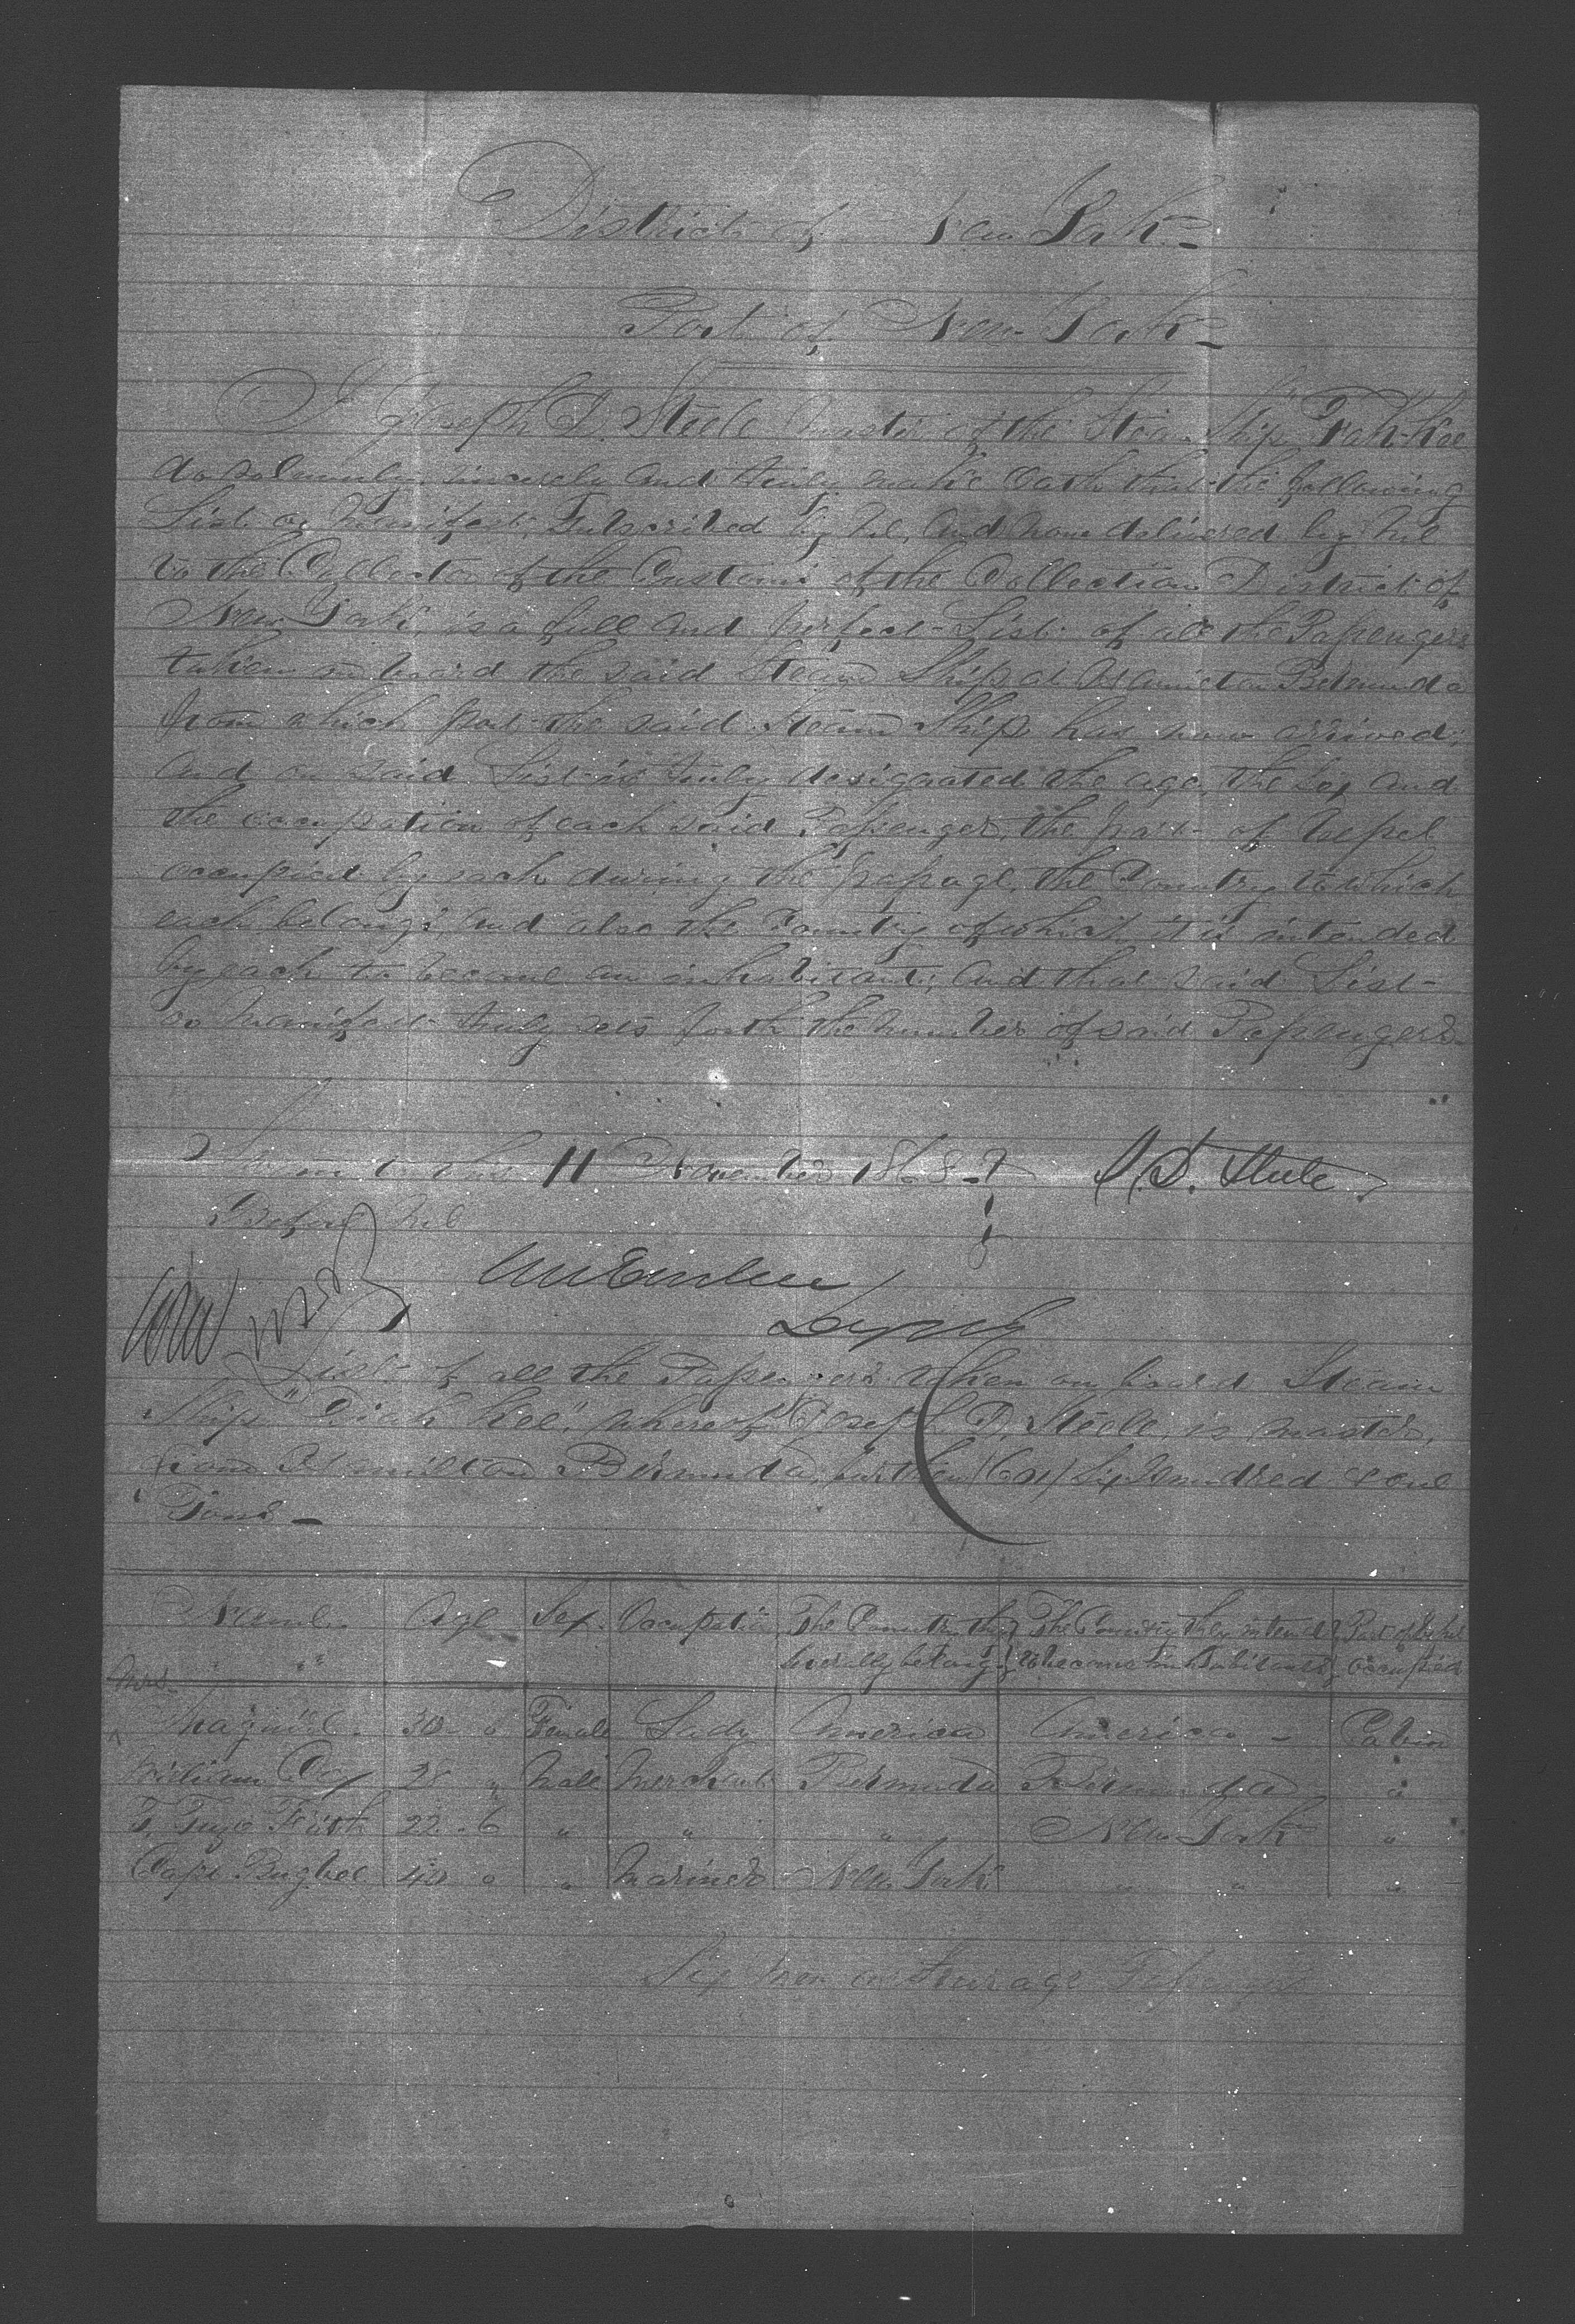 District of New York
Port of New York
I Joseph D. Steele Master of the Steam Ship "Fah-Kee
do solemnly, sincerely and truly make Oath that the following
List or Manifest, Subscribed by Me, and now delivered by Me
to the Collector of the Customs of the Collection District of
New York, is a full and perfect List of all the Passengers
taken on board the said Steam Ship at Hamilton Bermuda
from which port the said Steam Ship has now arrived;
and on said List is truly designated the age, the Sex and
the occupation of each said Passenger, the part of Vessel
occupied by each during the passage, the Country to which
each belongs, and also the Country of which it is intended
by each to become an inhabitant; and that said List
or Manifest truly sets forth the number of said Passengers.
Sworn to this 11 November 1868 J. D. Steele
Before Me
Depty
List of all the Passengers taken on board Steam
Ship Kee", whereof Joseph D. Steele, is Master,
from Hamilton Bermuda, burthen (601) Six Hundred & one
Tons
Name Age Sex Occupation The Country they The Country they intend Part of Vessel
severally belong to become inhabitants Occupied
Mrs
30 0 Female Lady America America Cabin
William Cox 28 " Male Merchant Bermuda Bermuda "
T. Frith 22 6 " " " New York "
Capt Bugbee 40 0 " Mariner New York " " "
Six men as Steerage Passengers